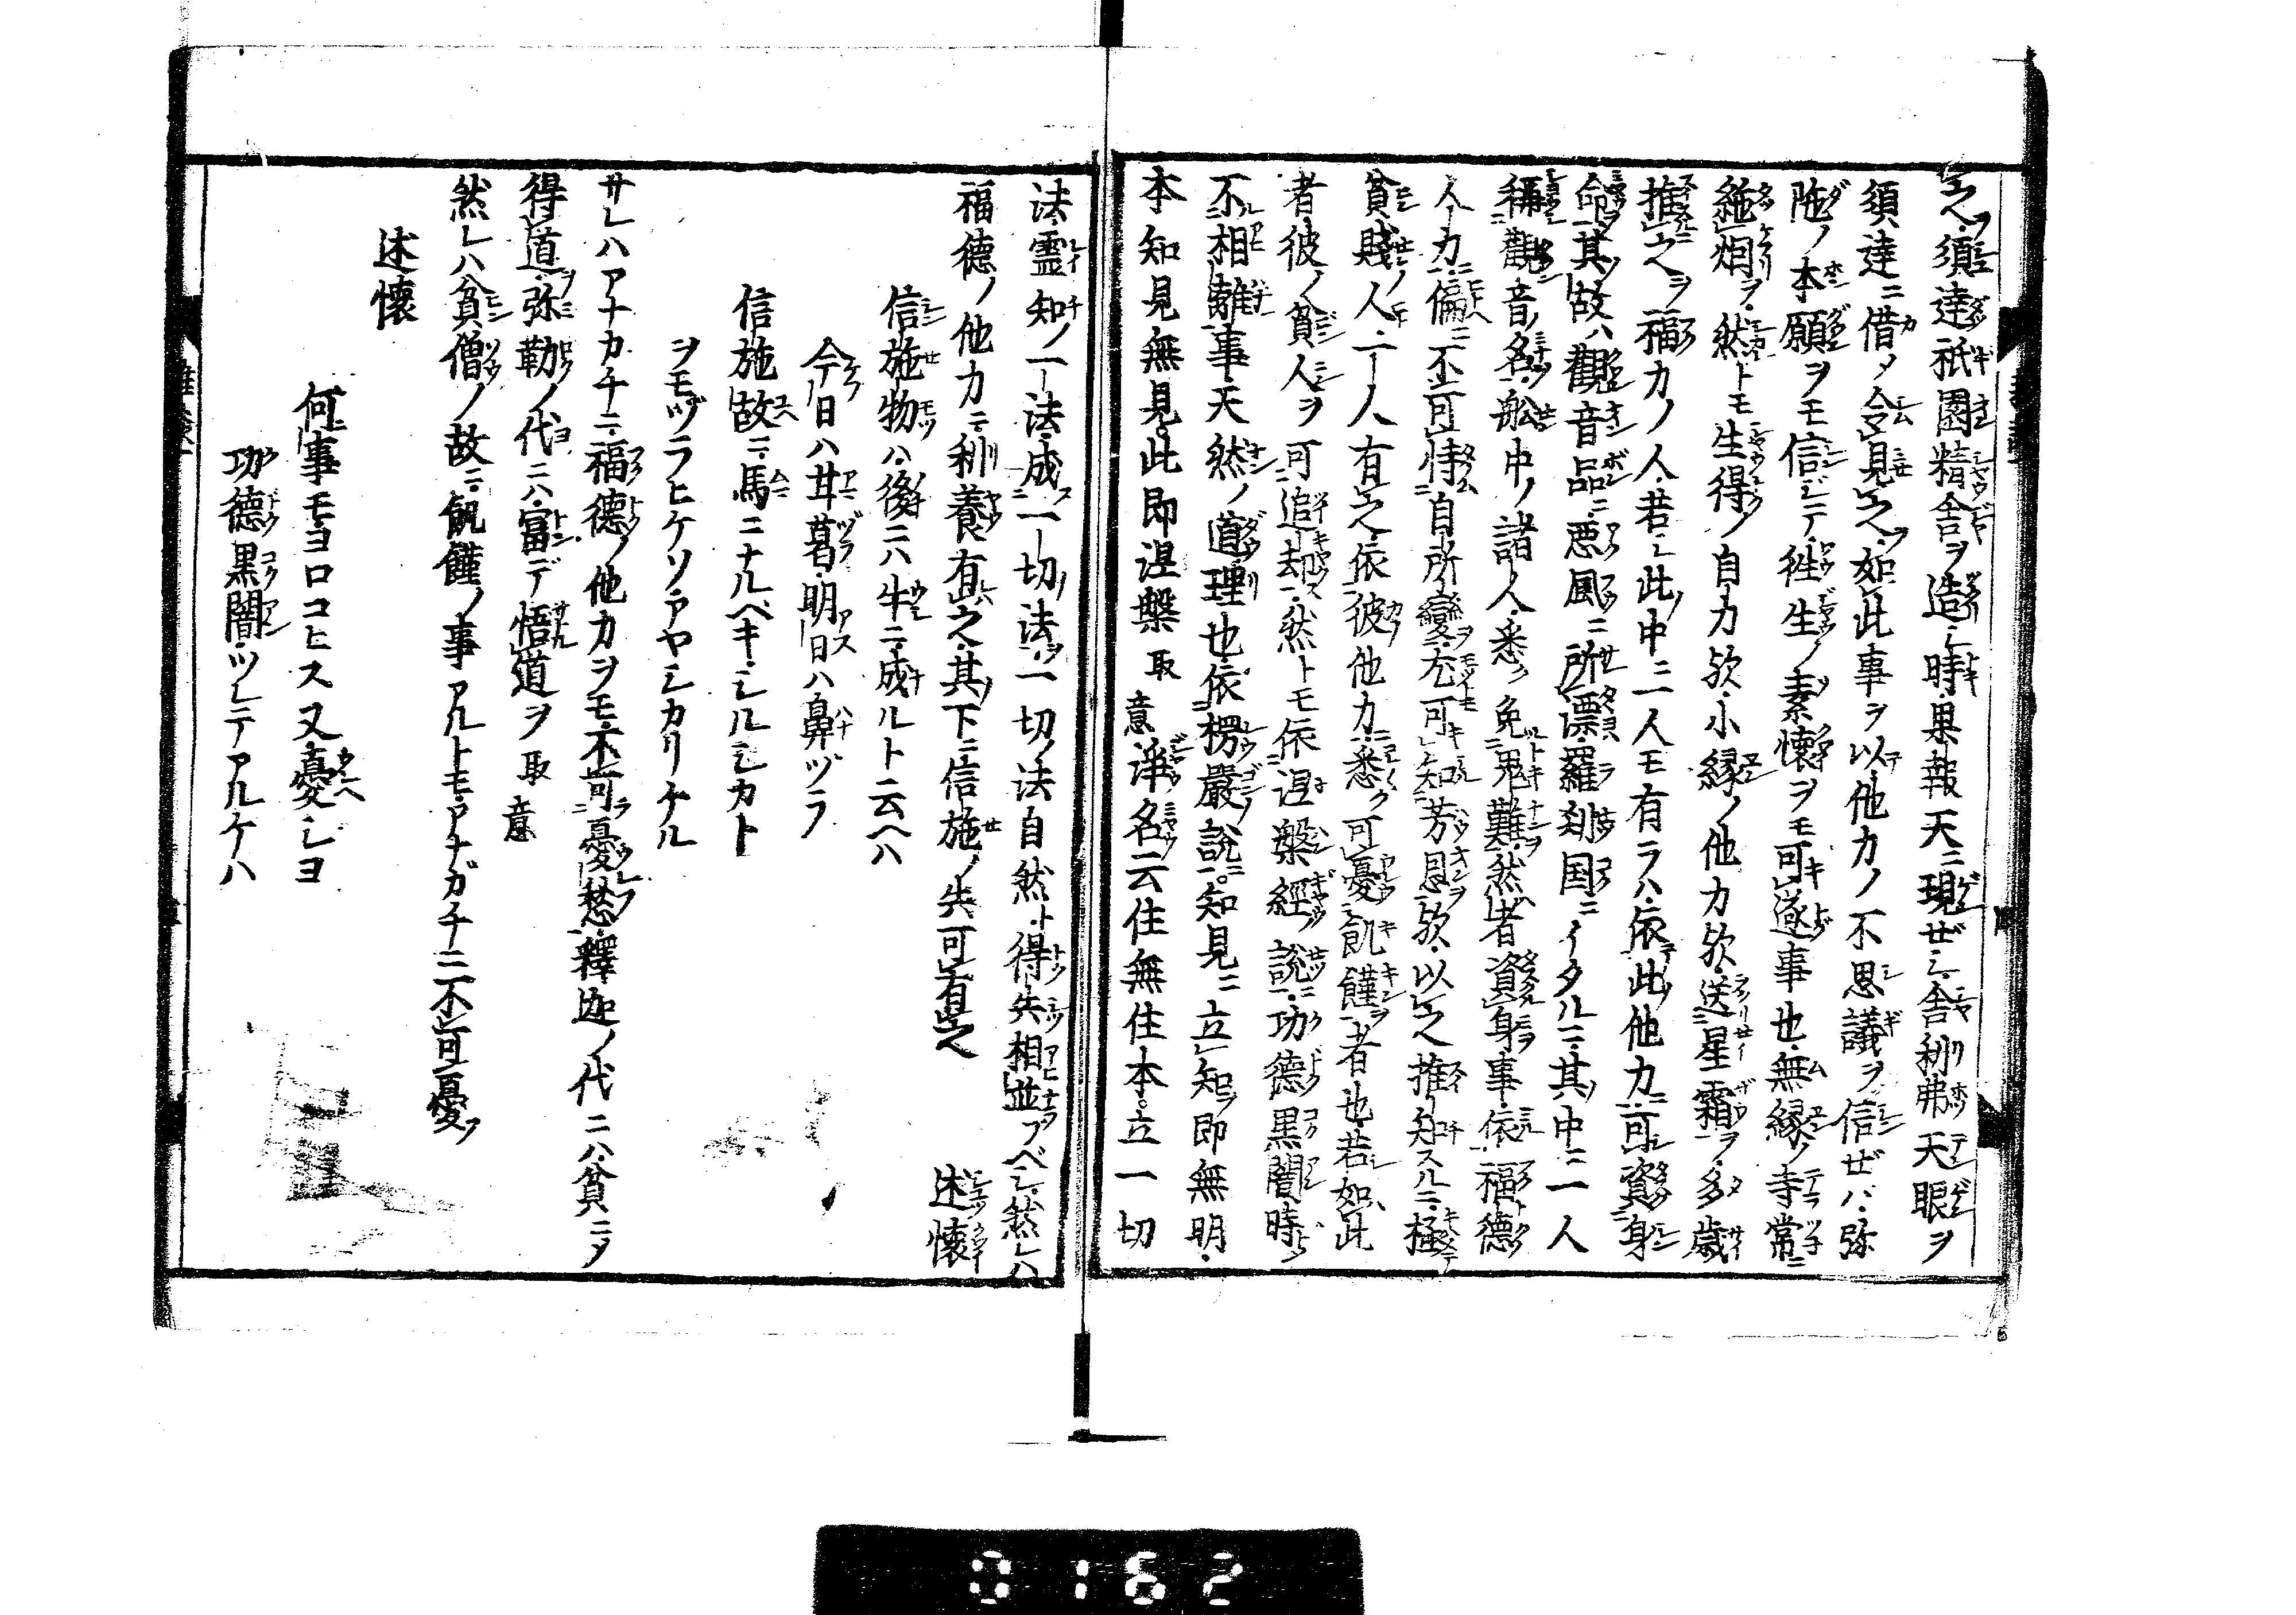 之須達祇園精舎ヲ造シ時果報天ニ現ゼシ舎利弗天眼ヲ
須達ニ借メ令見之如此事ヲ以他力ノ不思議ヲ信ゼバ弥
陁ノ本願ヲモ信ジテ徃生ノ素懐ヲモ可遂事也無縁ノ寺常ニ
絶烟ヲ然トモ生得ノ自力欤小縁ノ他力欤送星霜ヲ多歳
推之ヲ福力ノ人若シ此中ニ一人モ有ラハ依此他力ニ可資身
命其故ハ觀音品ニ悪風ニ所漂羅刹国ニイタルニ其中ニ一人
稱觀音ノ名舩中ノ諸人悉ク免鬼難然者資身事依福徳
人力偏ニ不可恃自所變尤可知芳恩欤以之推知スルニ極
貧賤ノ人二人有之依彼他力悉ク可憂飢饉者也若如此
者彼ノ貧人ヲ可追却然トモ依涅槃經説功徳黒闇時
不相離事天然ノ道理也依楞嚴説知見ニ立知即無明
本知見無見此即涅槃取意浄名云住無住本立一切
法霊知ノ一法成一切法ヲ一切ノ法自然ト得失相並フベシ然レハ
福徳ノ他力ニ利養有之其下ニ信施ノ失可有之 述懐
信施物ハ後ニハ牛ニ成ルト云ヘハ
今日ハ甘葛明日ハ鼻ヅラ
信施故ニ馬ニナルベキシルシカト
ヲモヅラヒケソアヤシカリケル
サレハアナカチニ福徳ノ他力ヲモ不可憂愁釋迦ノ代ニハ貧ニメ
得道弥勒ノ代ニハ富デ悟道ヲ取意
然レハ貧僧ノ故ニ飢饉ノ事アルトモアナガチニ不可憂
述懐
何事モヨロコヒス又憂ジヨ
功徳黒闇ツレテアルケハ
0162